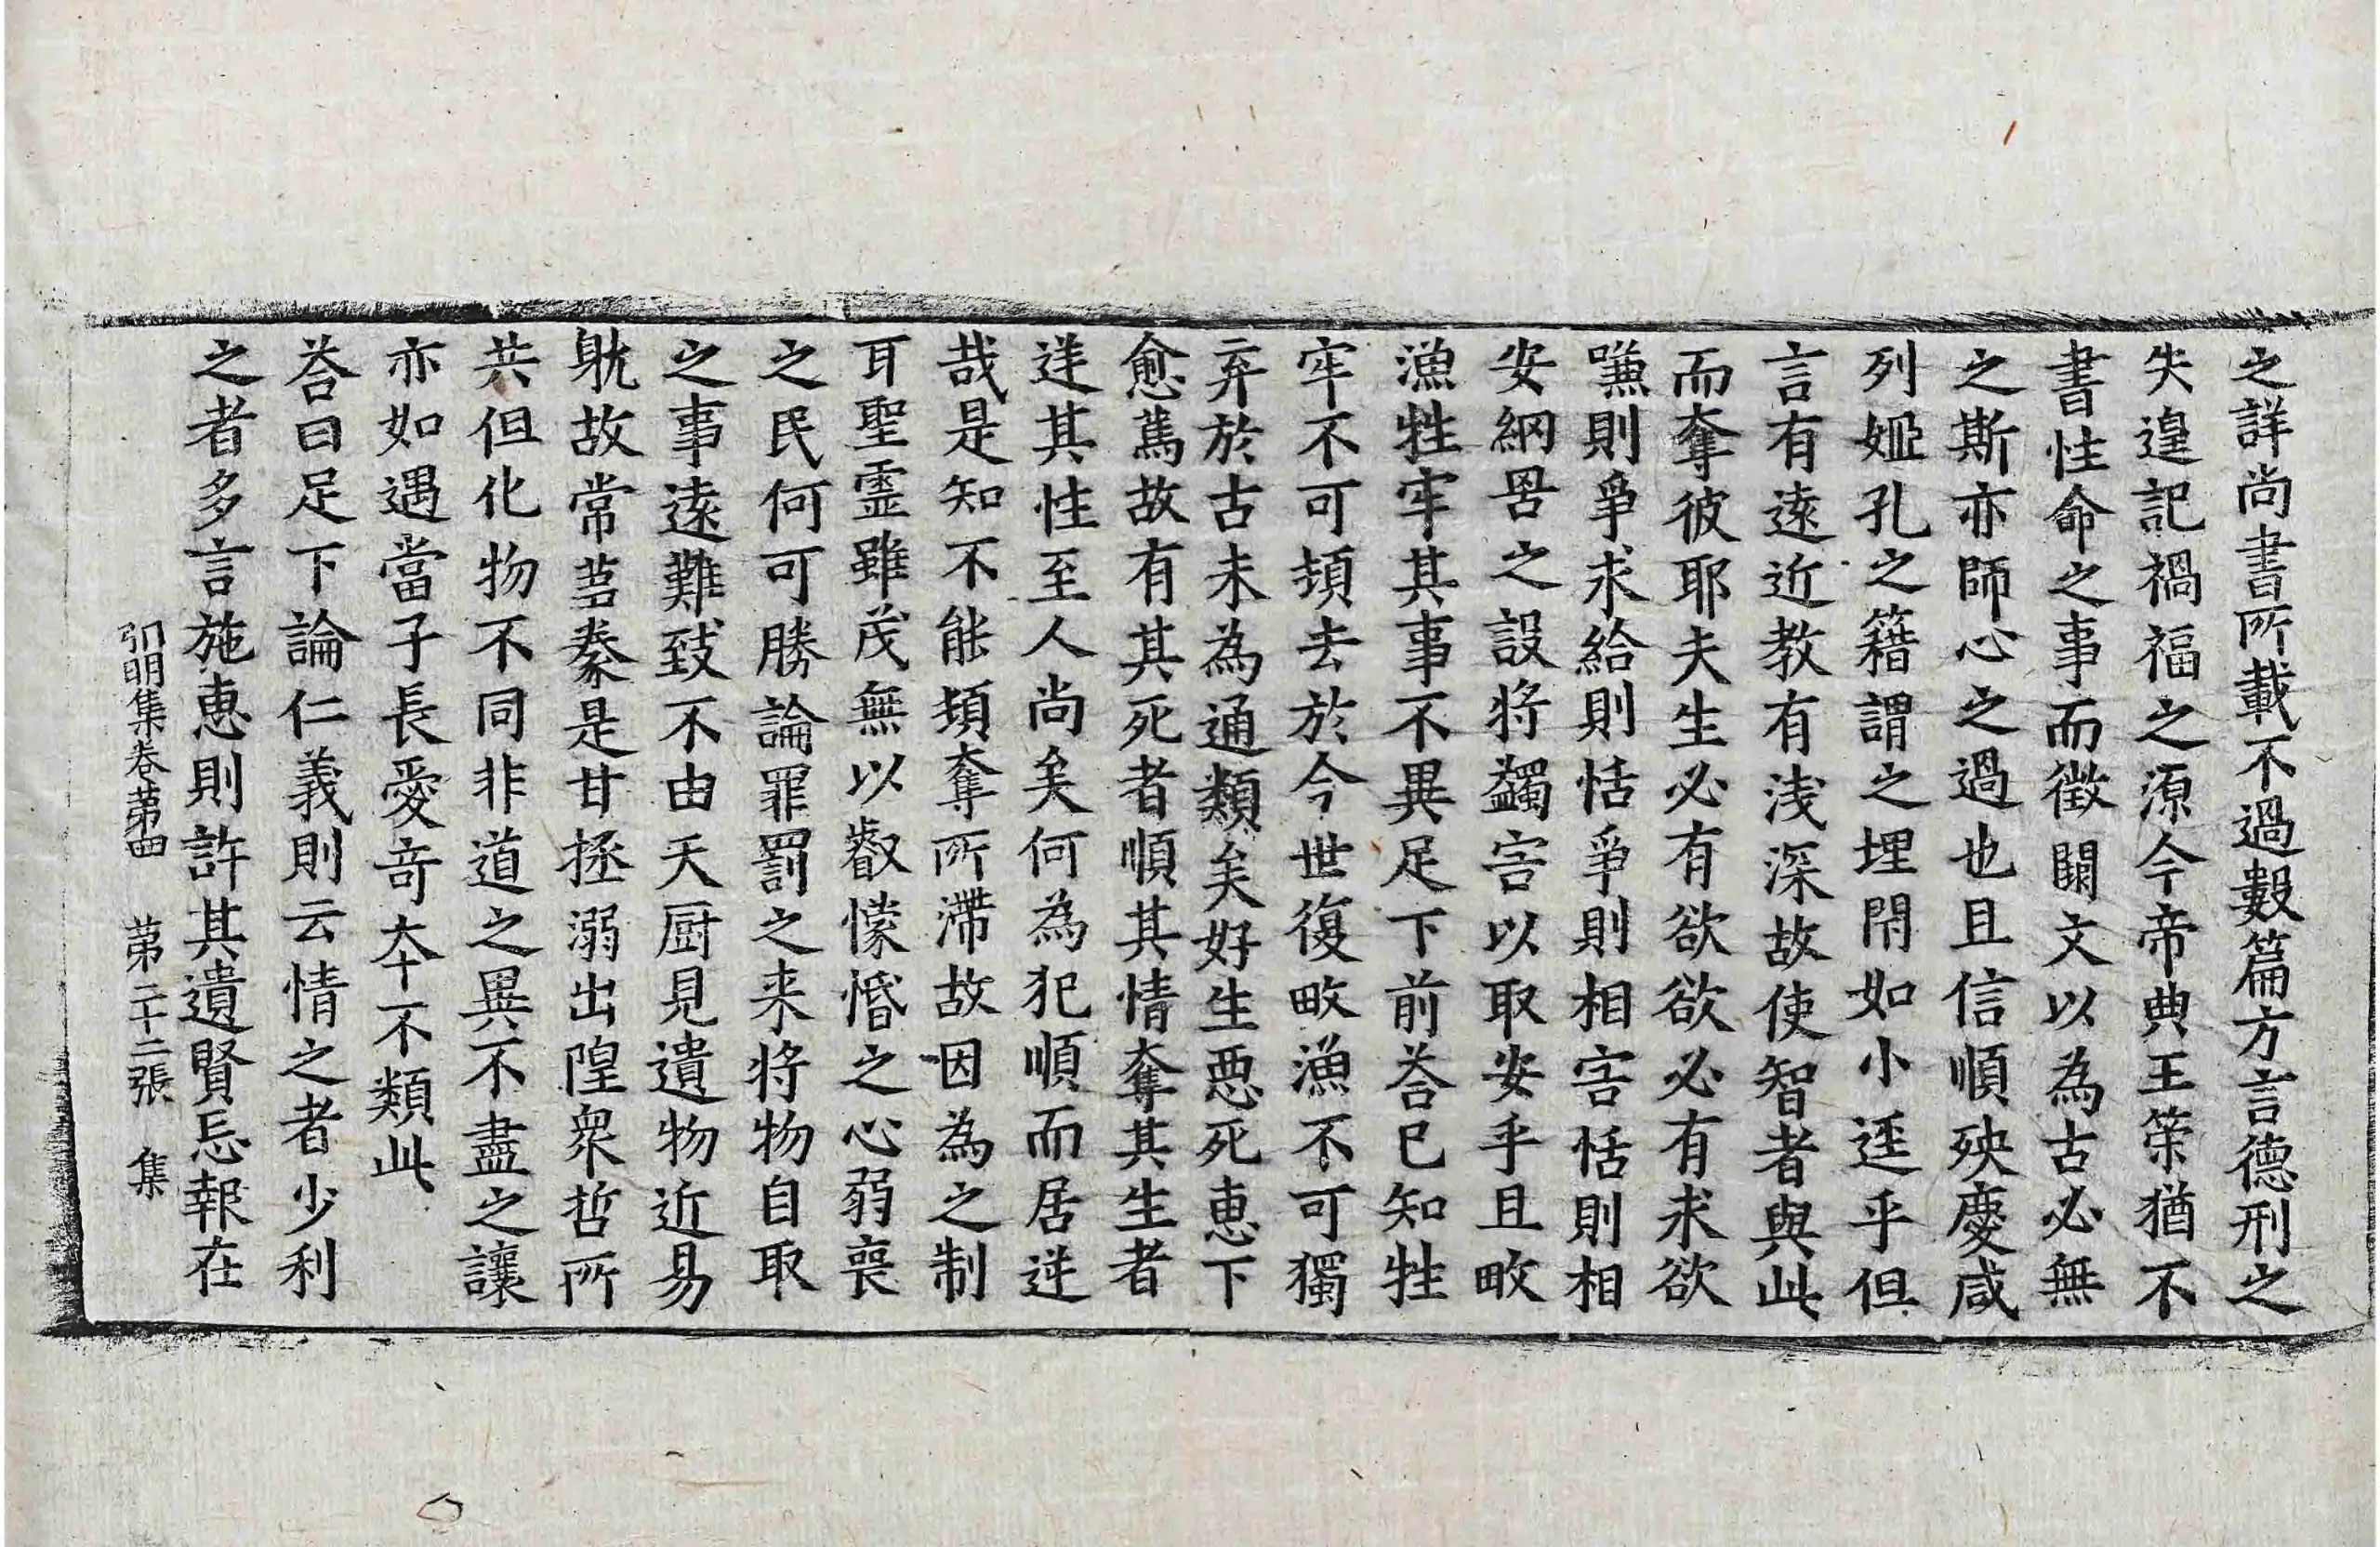 之詳尚書所載不過數篇方言德刑之
失遑記禍福之源今帝典王策猶不
書性命之事而徵闕文以為古必無
之斯亦師心之過也且信順殃慶咸
列姬孔之籍謂之埋閇如小逕乎但
言有遠近教有淺深故使智者與此
而奪彼耶夫生必有欲欲必有求欲
嗛則爭求給則恬爭則相害恬則相
安網罟之設將蠲害以取安乎且畋
漁牲牢其事不異足下前荅已知牲
牢不可頓去於今世復畋漁不可獨
弃於古未為通類矣好生惡死惠下
愈篤故有其死者順其情奪其生者
逆其性至人尚矣何為犯順而居逆
哉是知不能頓奪所滯故因為之制
耳聖靈雖茂無以叡懞惛之心弱喪
之民何可勝論罪罰之来將物自取
之事遠難致不由天厨見遺物近易
躭故常蒭豢是甘拯溺出隍衆哲所
共但化物不同非道之異不盡之讓
亦如遇當子長愛竒夲不類此
荅曰足下論仁義則云情之者少利
之者多言施惠則許其遺賢忘報在
弘明集卷苐四　苐二十二張　集